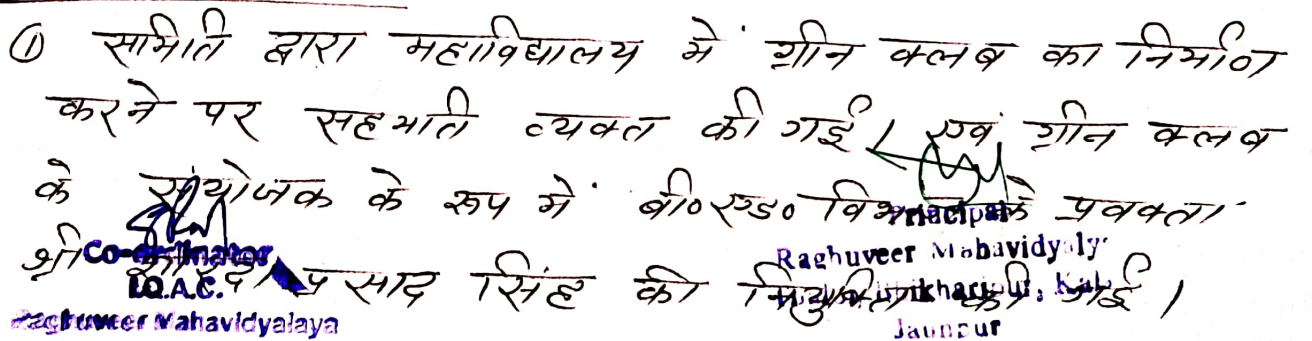 ① समिति द्वारा महाविद्यालय में ग्रीन क्लब का निर्माण
करने पर सहमति व्यक्त की गई। एवं ग्रीन क्लब
के संयोजक के रूप में बी०एड० विभाग के प्रवक्ता
श्री शारदा प्रसाद सिंह की नियुक्ति की गई।
Co-ordinator
I.Q.A.C.
Raghuveer Mahavidyalaya
Principal
Raghuveer Mahavidyaly
Jaunpur